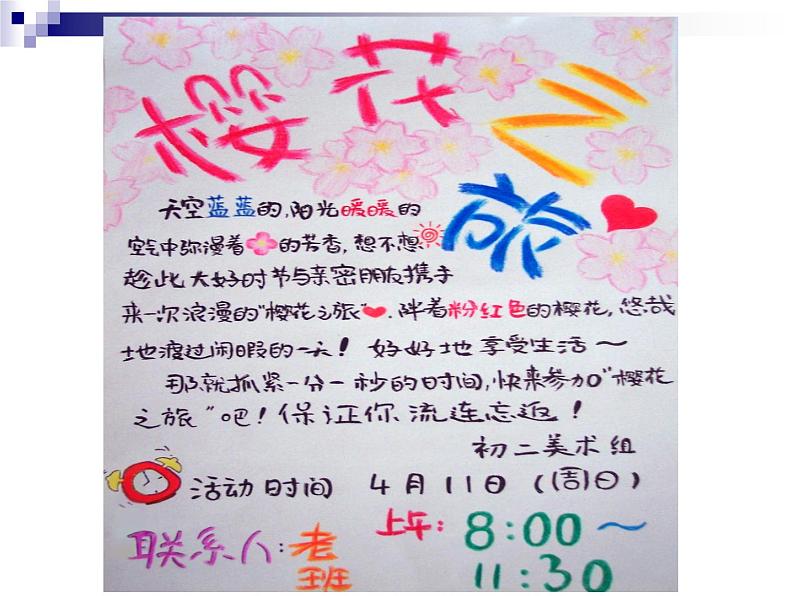 樱花之旅
天空蓝蓝的,阳光暖暖的
空气中弥漫着的芳香,想不想
趁此大好时节与亲密朋友携手
来一次浪漫的"樱花之旅".伴着粉红色的樱花,悠哉
地渡过闲暇的一天!好好地享受生活~
那就抓紧一分一秒的时间,快来参加"樱花
之旅"吧!保证你流连忘返!
初二美术组
活动时间 4月11日(周日)
上午:8:00~
11:30
联系人:老
班